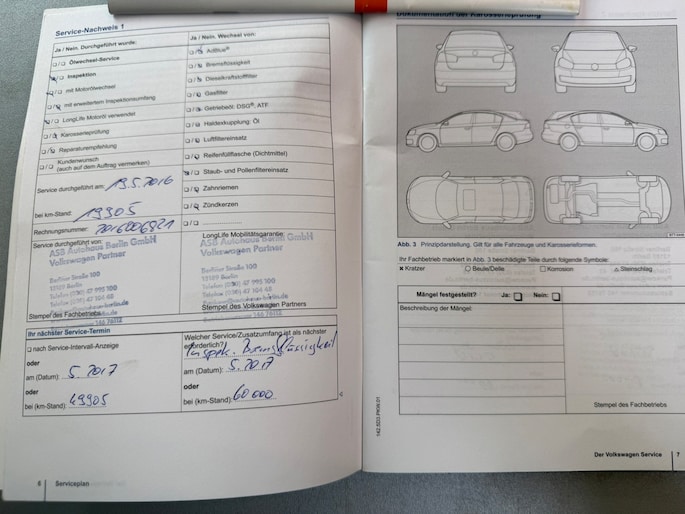 Service-Nachweis 1
Ja / Nein. Durchgeführt wurde:
Ja / Nein. Wechsel von:
Ölwechsel-Service
AdBlue®
Inspektion
Bremsflüssigkeit
mit Motorölwechsel
Dieselkraftstofffilter
mit erweitertem Inspektionsumfang
Gasfilter
LongLife Motoröl verwendet
Getriebeöl: DSG®, ATF
Karosserieprüfung
Haldexkupplung: Öl
Reparaturempfehlung
Luftfiltereinsatz
Kundenwunsch
(auch auf dem Auftrag vermerken)
Reifenfüllflasche (Dichtmittel)
Staub- und Pollenfiltereinsatz
Service durchgeführt am: 19.5.2016
Zahnriemen
bei km-Stand: 19905
Zündkerzen
Rechnungsnummer: 2016006921
Service durchgeführt von:
LongLife Mobilitätsgarantie:
ASB Autohaus Berlin GmbH
Volkswagen Partner
Berliner Straße 100
13189 Berlin
ASB Autohaus Berlin GmbH
Volkswagen Partner
Berliner Straße 100
Stempel des Fachbetriebs
Stempel des Volkswagen Partners
Ihr nächster Service-Termin
nach Service-Intervall-Anzeige
oder
am (Datum): 5.2017
oder
bei (km-Stand): 49905
Welcher Service/Zusatzumfang ist als nächster
erforderlich?
Inspek. Bremsflüssigkeit
am (Datum): 5.2017
oder
bei (km-Stand): 60000
6 Serviceplan
Dokumentation der Karosserieprüfung
Abb. 3 Prinzipdarstellung. Gilt für alle Fahrzeuge und Karosserieformen.
Ihr Fachbetrieb markiert in Abb. 3 beschädigte Teile durch folgende Symbole:
× Kratzer ○ Beule/Delle □ Korrosion △ Steinschlag
Mängel festgestellt? Ja: Nein:
Beschreibung der Mängel:
Stempel des Fachbetriebs
142.5D2.PKW.01
Der Volkswagen Service 7